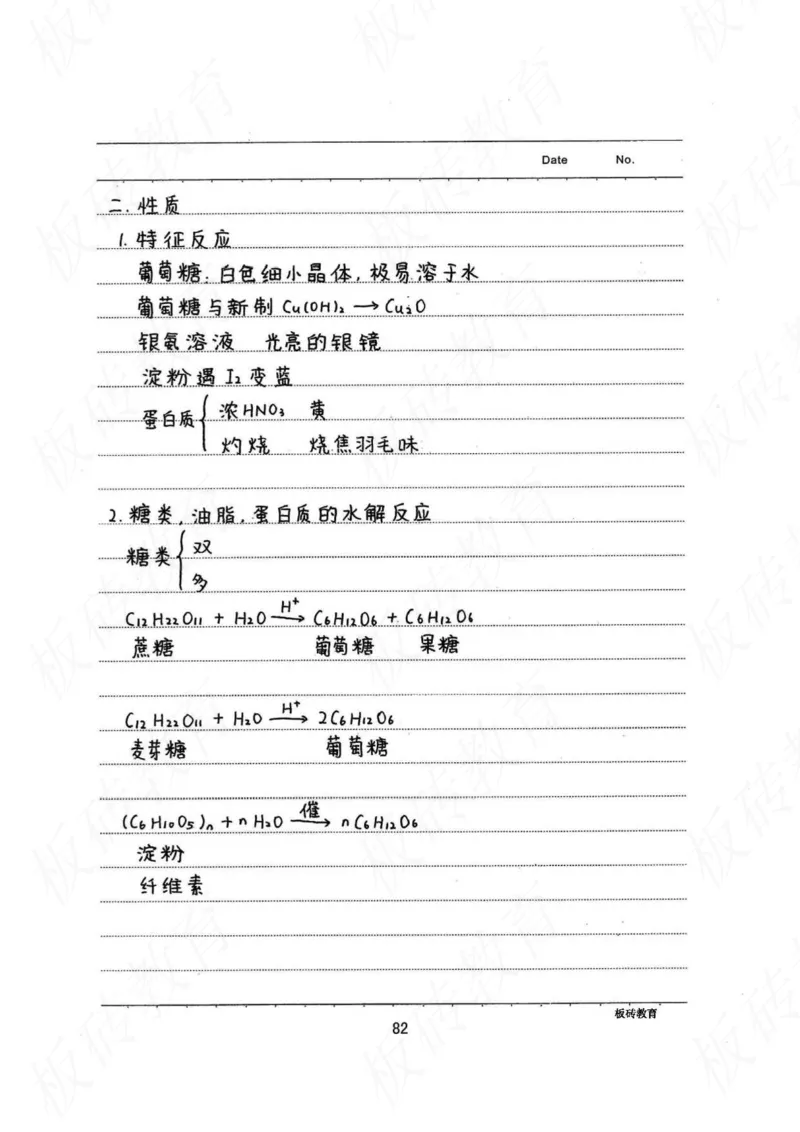 Date No.
二.性质
1.特征反应
葡萄糖:白色细小晶体,极易溶于水
葡萄糖与新制Cu(OH)₂ → Cu₂O
银氨溶液 光亮的银镜
淀粉遇I₂变蓝
蛋白质 { 浓HNO₃ 黄
灼烧 烧焦羽毛味
2.糖类,油脂,蛋白质的水解反应
糖类 { 双
多
C₁₂H₂₂O₁₁ + H₂O —H⁺→ C₆H₁₂O₆ + C₆H₁₂O₆
蔗糖 葡萄糖 果糖
C₁₂H₂₂O₁₁ + H₂O —H⁺→ 2C₆H₁₂O₆
麦芽糖 葡萄糖
(C₆H₁₀O₅)ₙ + nH₂O —催→ nC₆H₁₂O₆
淀粉
纤维素
板砖教育
82